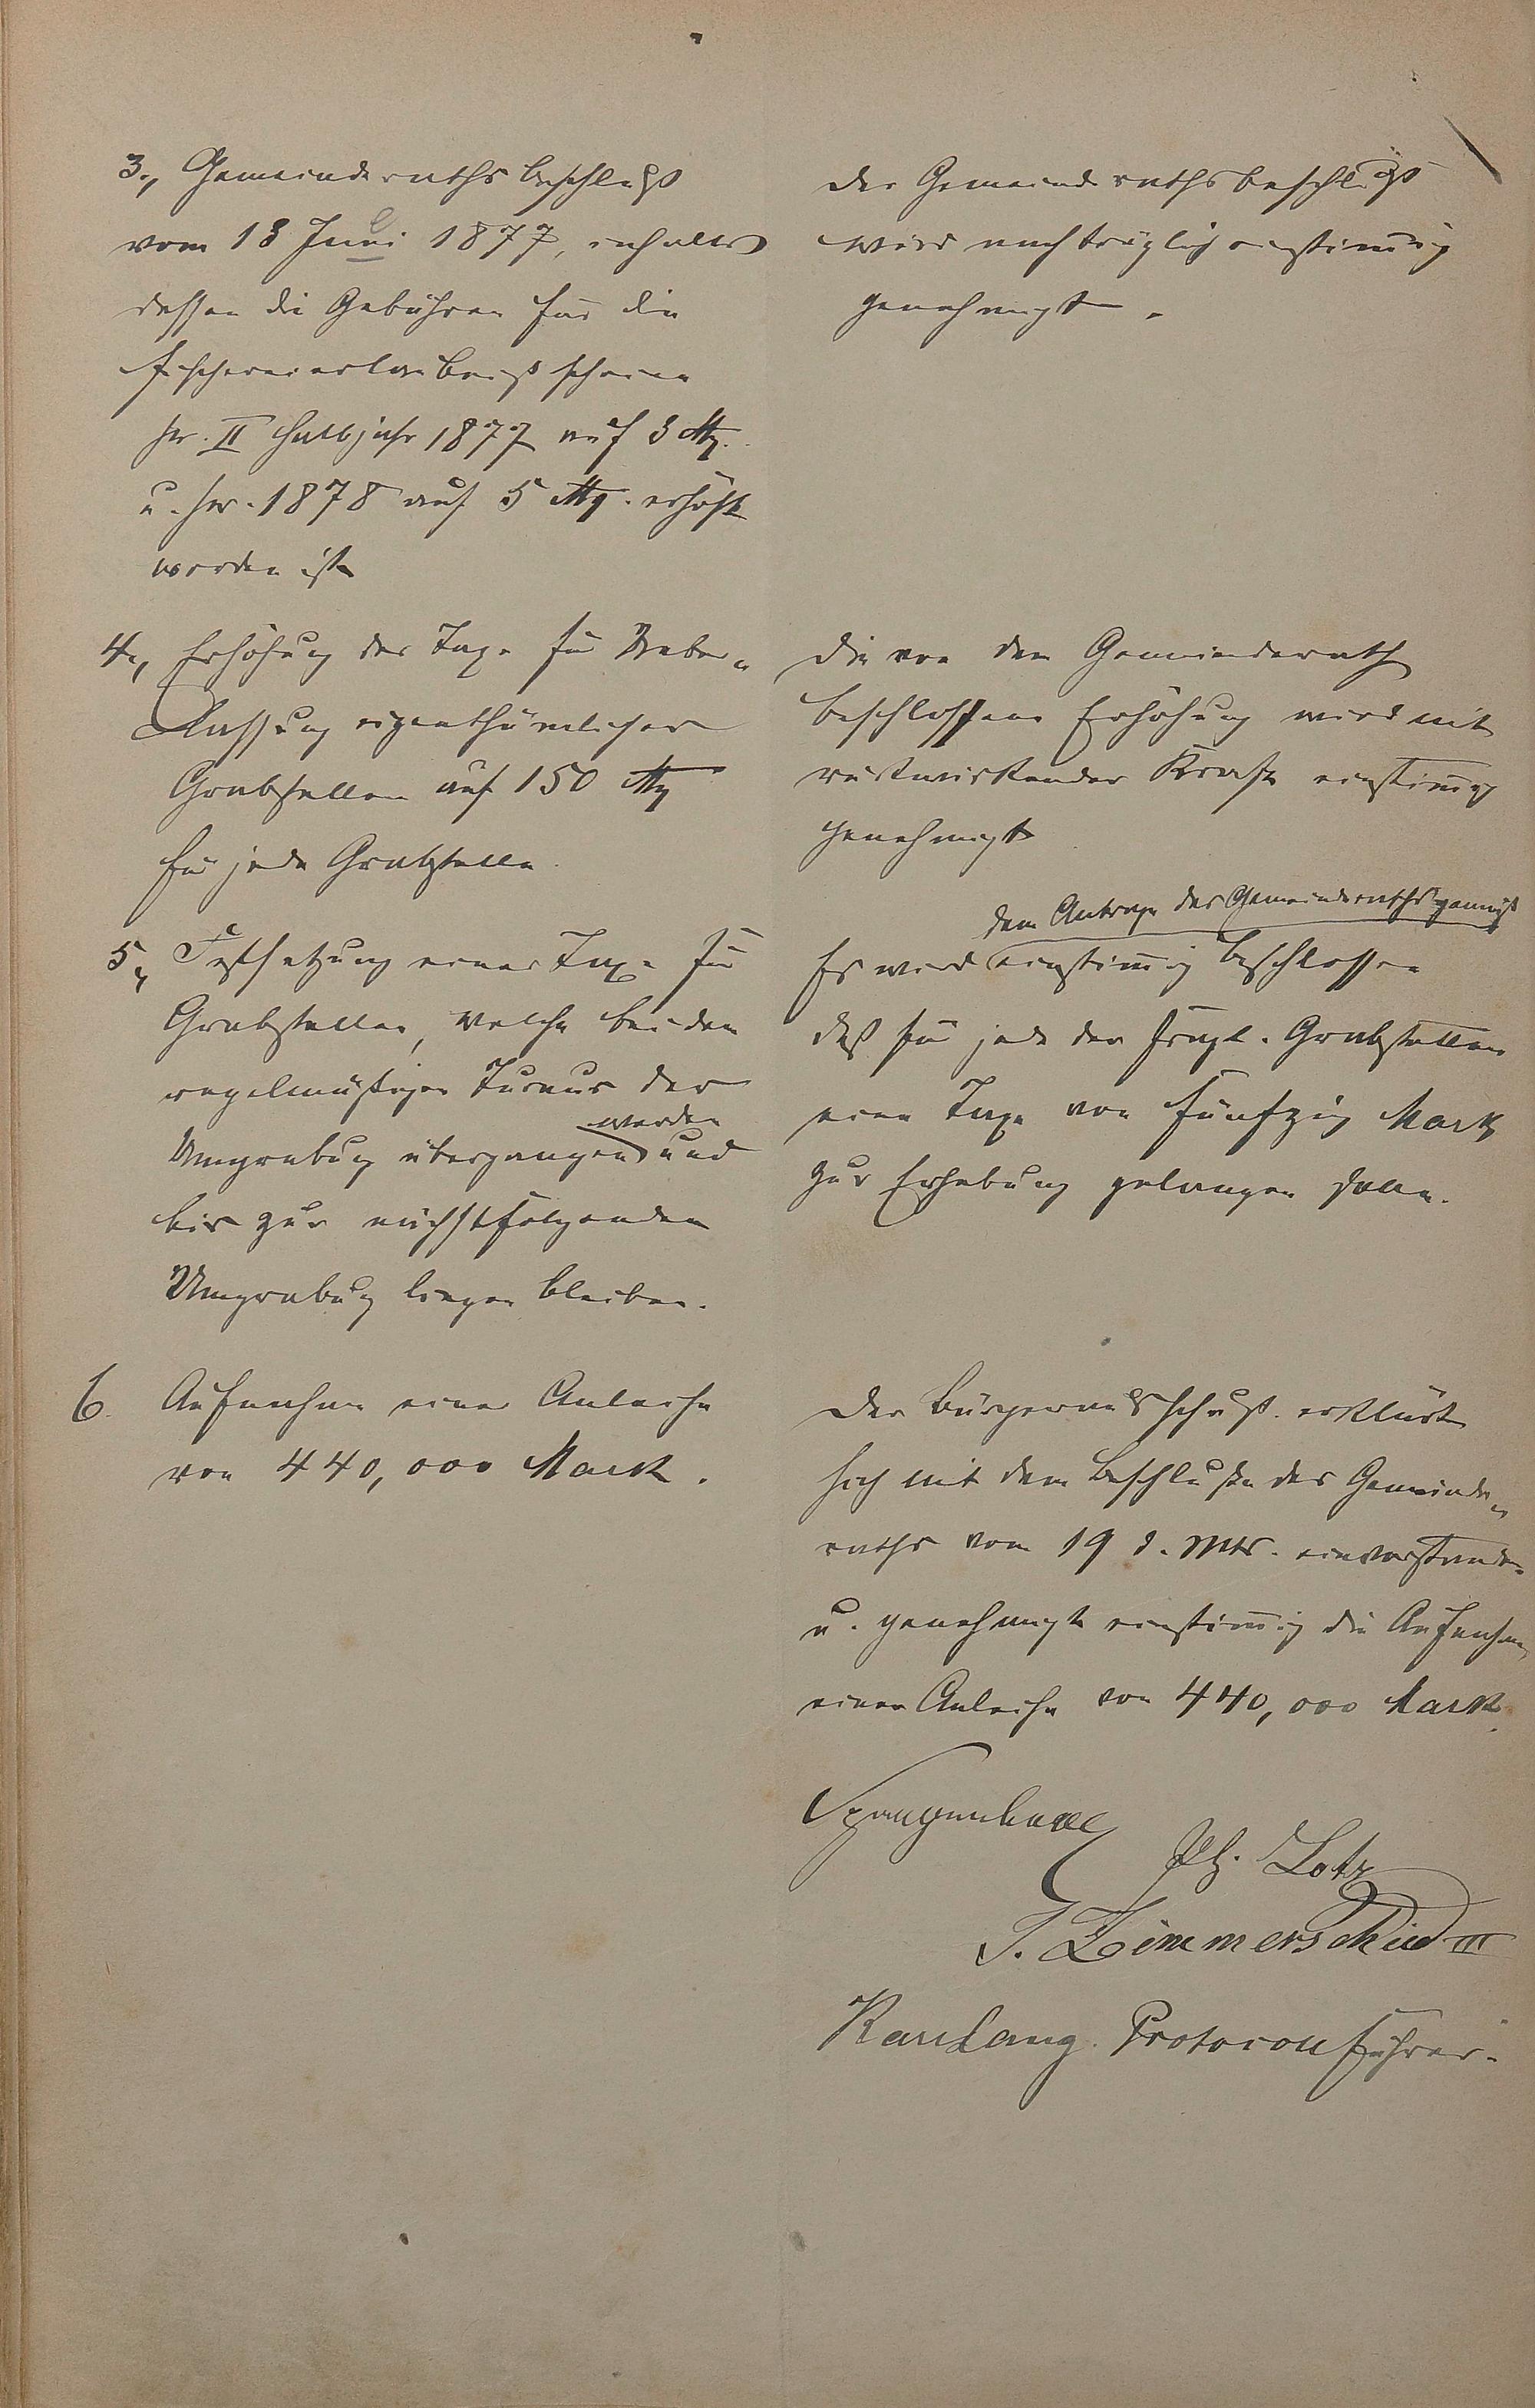 3., Gemeinderathsbeschluß
vom 13 Juni 1877, inhaltlich
dessen die Gebühren für die
Fischereierlaubnißscheine
pr. II Halbjahr 1877 auf 3 M.
u. pr. 1878 auf 5 M. erhöht
worden ist
der Gemeinderathsbeschluß
wird nachträglich einstimmig
genehmigt.
4., Erhöhung der Taxe für Ueber-
lassung eigenthümlicher
Grabstellen auf 150 M
für jede Grabstelle.
die von dem Gemeinderath
beschlossene Erhöhung wird mit
rückwirkender Kraft einstimig
genehmigt
5., Festsetzung einer Taxe für
Grabstellen, welche bei dem
regelmäßigen Turnus der
Umgrabung übergangen werden und
bis zur nächstfolgenden
Umgrabung liegen bleiben.
dem Antrage des Gemeinderaths gemäß
Es wird einstimig beschlossen
daß für jede der fragl. Grabstellen
eine Taxe von fünfzig Mark
zur Erhebung gelangen solle.
6. Aufnahme einer Anleihe
von 440,000 Mark.
Der Bürgerausschuß erklärt
sich mit dem Beschluße des Gemeinde-
raths vom 19 d. Mts. einverstanden
u. genehmigt einstimig die Aufnahme
einer Anleihe von 440,000 Mark.
Spangenberg
Ph. Lotz
J. Zimmerschied III
Karl Lang. Protocollführer.